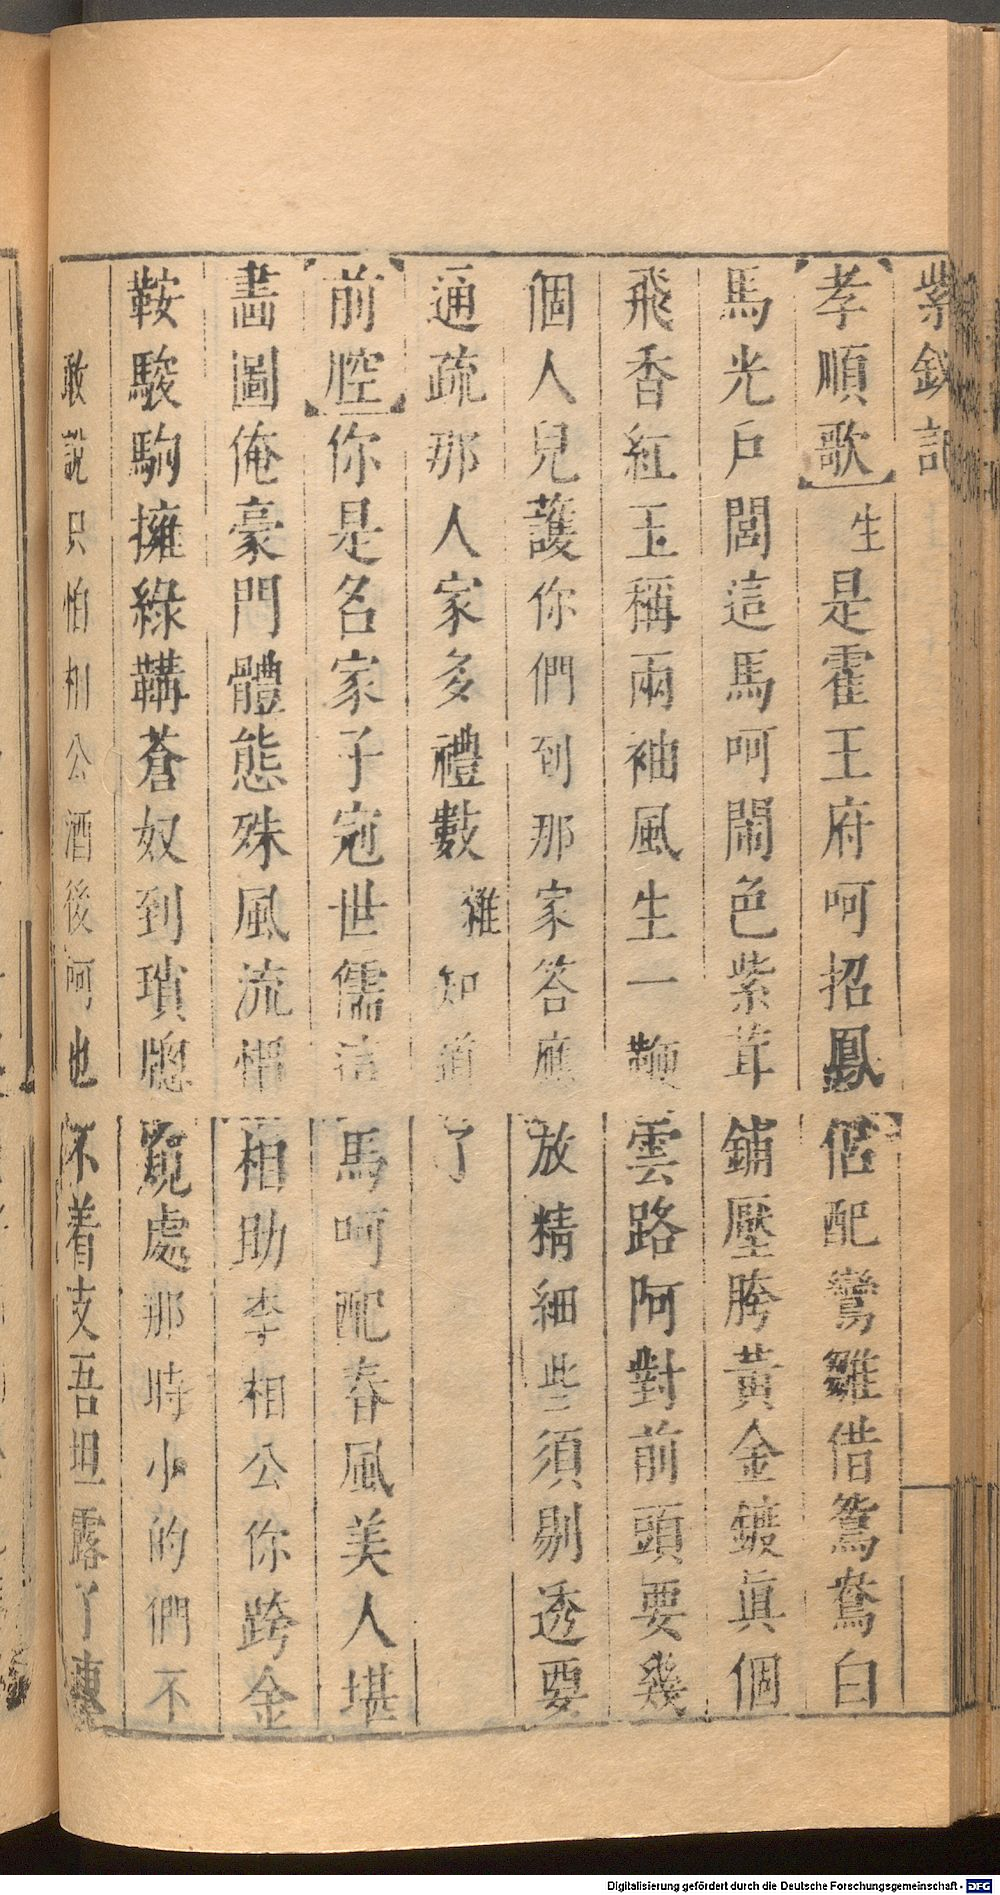 紫釵記
【孝順歌】生是霍王府呵招鳳侶配鸞雛借鴛鴦白
馬光戶閭這馬呵鬧色紫茸鋪壓胯黃金鍍眞個
飛香紅玉稱兩袖風生一鞭雲路阿對前頭要幾
個人兒護你們到那家答應放精細些須剔透要
通疏那人家多禮數雜知道了
【前腔】你是名家子冠世儒這馬呵配春風美人堪
畵圖俺豪門體態殊風流惜相助李相公你跨金
鞍駿駒擁綠鞲蒼奴到瑣牕窺處那時小的們不
敢說只怕相公酒後呵也不着支吾坦露了
Digitalisierung gefördert durch die Deutsche Forschungsgemeinschaft - DFG